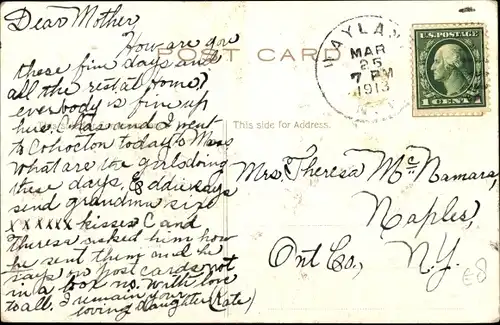 Dear Mother,
How are you
these fine days and
all the rest at Home?
everbody is fine up
here. Chas and I went
to Cohocton today to Mass
what are the girls doing
these days, Eddie says
send grandma six
x x x x x x kisses C and
Theresa asked him how
he sent them and he
says on post cards not
in a box no. With love
to all. I remain your
loving daughter (Kate)
POST CARD
This side for Address.
WAYLAND
MAR
25
7 PM
1913
N.Y.
U.S. POSTAGE
1 CENT 1
Mrs. Theresa McNamara,
Naples,
Ont Co., N.Y.
€8